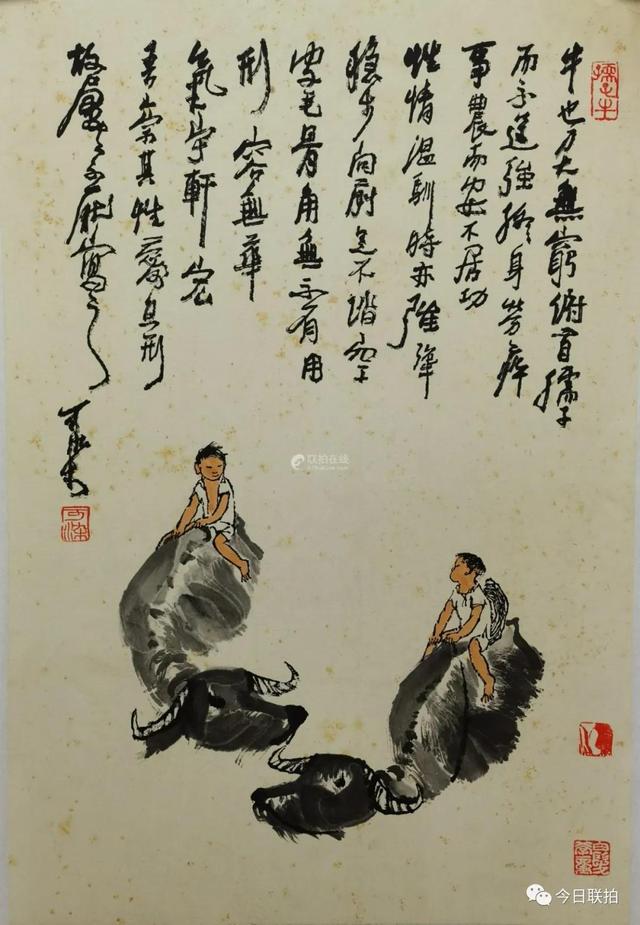 牛也力大無窮俯首孺子
而不逞強終身勞瘁
事農而安不居功
性情温馴時亦強犟
穩步向前足不踏空
皮毛骨角無不有用
形容無華
氣宇軒宏
吾崇其性愛其形
故屢屢不厭寫之
可染
孺子牛
可染
联拍在线
今日联拍